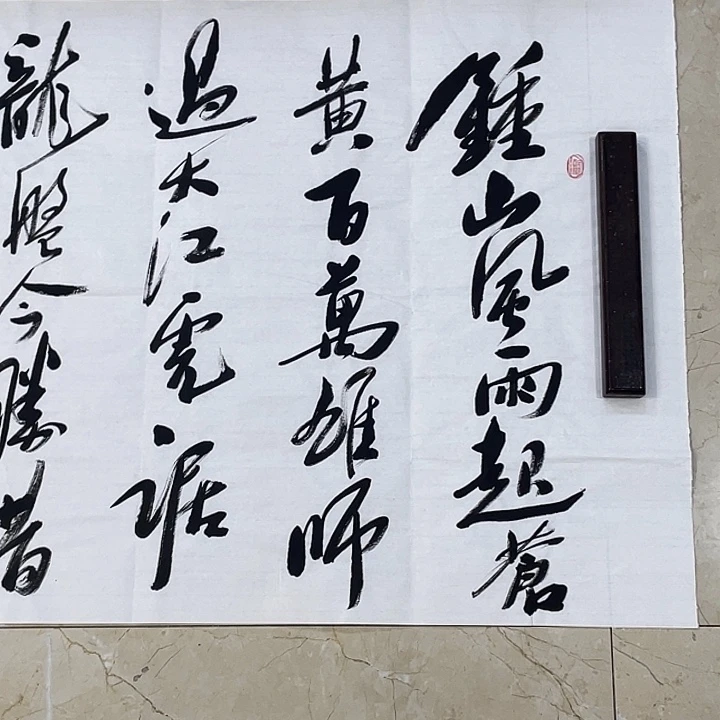 鍾山風雨起蒼
黃百萬雄師
過大江虎踞
龍盤今勝昔